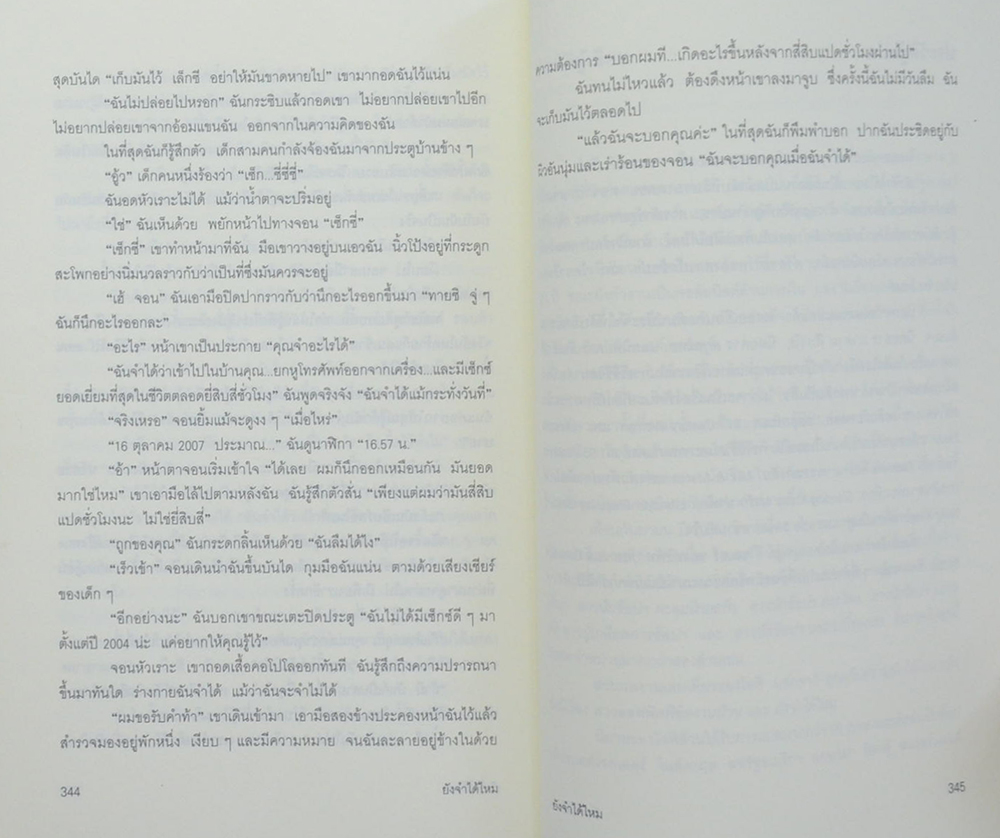 สุดบันได “เก็บมันไว้ เล็กซี อย่าให้มันขาดหายไป” เขามากอดฉันไว้แน่น
“ฉันไม่ปล่อยไปหรอก” ฉันกระซิบแล้วกอดเขา ไม่อยากปล่อยเขาไปอีก
ไม่อยากปล่อยเขาจากอ้อมแขนฉัน ออกจากในความคิดของฉัน
ในที่สุดฉันก็รู้สึกตัว เด็กสามคนกำลังจ้องฉันมาจากประตูบ้านข้าง ๆ
“อู้ว” เด็กคนหนึ่งร้องว่า “เซ็ก...ซี่ซี่ซี่”
ฉันอดหัวเราะไม่ได้ แม้ว่าน้ำตาจะปริ่มอยู่
“ใช่” ฉันเห็นด้วย พยักหน้าไปทางจอน “เซ็กซี่”
“เซ็กซี่” เขาทำหน้ามาที่ฉัน มือเขาวางอยู่บนเอวฉัน นิ้วโป้งอยู่ที่กระดูก
สะโพกอย่างนิ่มนวลราวกับว่าเป็นที่ซึ่งมันควรจะอยู่
“เฮ้ จอน” ฉันเอามือปิดปากราวกับว่านึกอะไรออกขึ้นมา “ทายซิ จู่ ๆ
ฉันก็นึกอะไรออกละ”
“อะไร” หน้าเขาเป็นประกาย “คุณจำอะไรได้”
“ฉันจำได้ว่าเข้าไปในบ้านคุณ...ยกหูโทรศัพท์ออกจากเครื่อง...และมีเซ็กซ์
ยอดเยี่ยมที่สุดในชีวิตตลอดยี่สิบสี่ชั่วโมง” ฉันพูดจริงจัง “ฉันจำได้แม้กระทั่งวันที่”
“จริงเหรอ” จอนยิ้มแม้จะดูงง ๆ “เมื่อไหร่”
“16 ตุลาคม 2007 ประมาณ...” ฉันดูนาฬิกา “16.57 น.”
“อ้า” หน้าตาจอนเริ่มเข้าใจ “ได้เลย ผมก็นึกออกเหมือนกัน มันยอด
มากใช่ไหม” เขาเอามือไล้ไปตามหลังฉัน ฉันรู้สึกตัวสั่น “เพียงแต่ผมว่ามันสี่สิบ
แปดชั่วโมงนะ ไม่ใช่ยี่สิบสี่”
“ถูกของคุณ” ฉันกระดกลิ้นเห็นด้วย “ฉันลืมได้ไง”
“เร็วเข้า” จอนเดินนำฉันขึ้นบันได กุมมือฉันแน่น ตามด้วยเสียงเชียร์
ของเด็ก ๆ
“อีกอย่างนะ” ฉันบอกเขาขณะเตะปิดประตู “ฉันไม่ได้มีเซ็กซ์ดี ๆ มา
ตั้งแต่ปี 2004 น่ะ แค่อยากให้คุณรู้ไว้”
จอนหัวเราะ เขาถอดเสื้อคอโปโลออกทันที ฉันรู้สึกถึงความปรารถนา
ขึ้นมาทันใด ร่างกายฉันจำได้ แม้ว่าฉันจะจำไม่ได้
“ผมขอรับคำท้า” เขาเดินเข้ามา เอามือสองข้างประคองหน้าฉันไว้แล้ว
สำรวจมองอยู่พักหนึ่ง เงียบ ๆ และมีความหมาย จนฉันละลายอยู่ข้างในด้วย
344
ยังจำได้ไหม
ความต้องการ “บอกผมที...เกิดอะไรขึ้นหลังจากสี่สิบแปดชั่วโมงผ่านไป”
ฉันทนไม่ไหวแล้ว ต้องดึงหน้าเขาลงมาจูบ ซึ่งครั้งนี้ฉันไม่มีวันลืม ฉัน
จะเก็บมันไว้ตลอดไป
“แล้วฉันจะบอกคุณค่ะ” ในที่สุดฉันก็พึมพำบอก ปากฉันประชิดอยู่กับ
ผิวอันนุ่มและเร่าร้อนของจอน “ฉันจะบอกคุณเมื่อฉันจำได้”
ยังจำได้ไหม
345